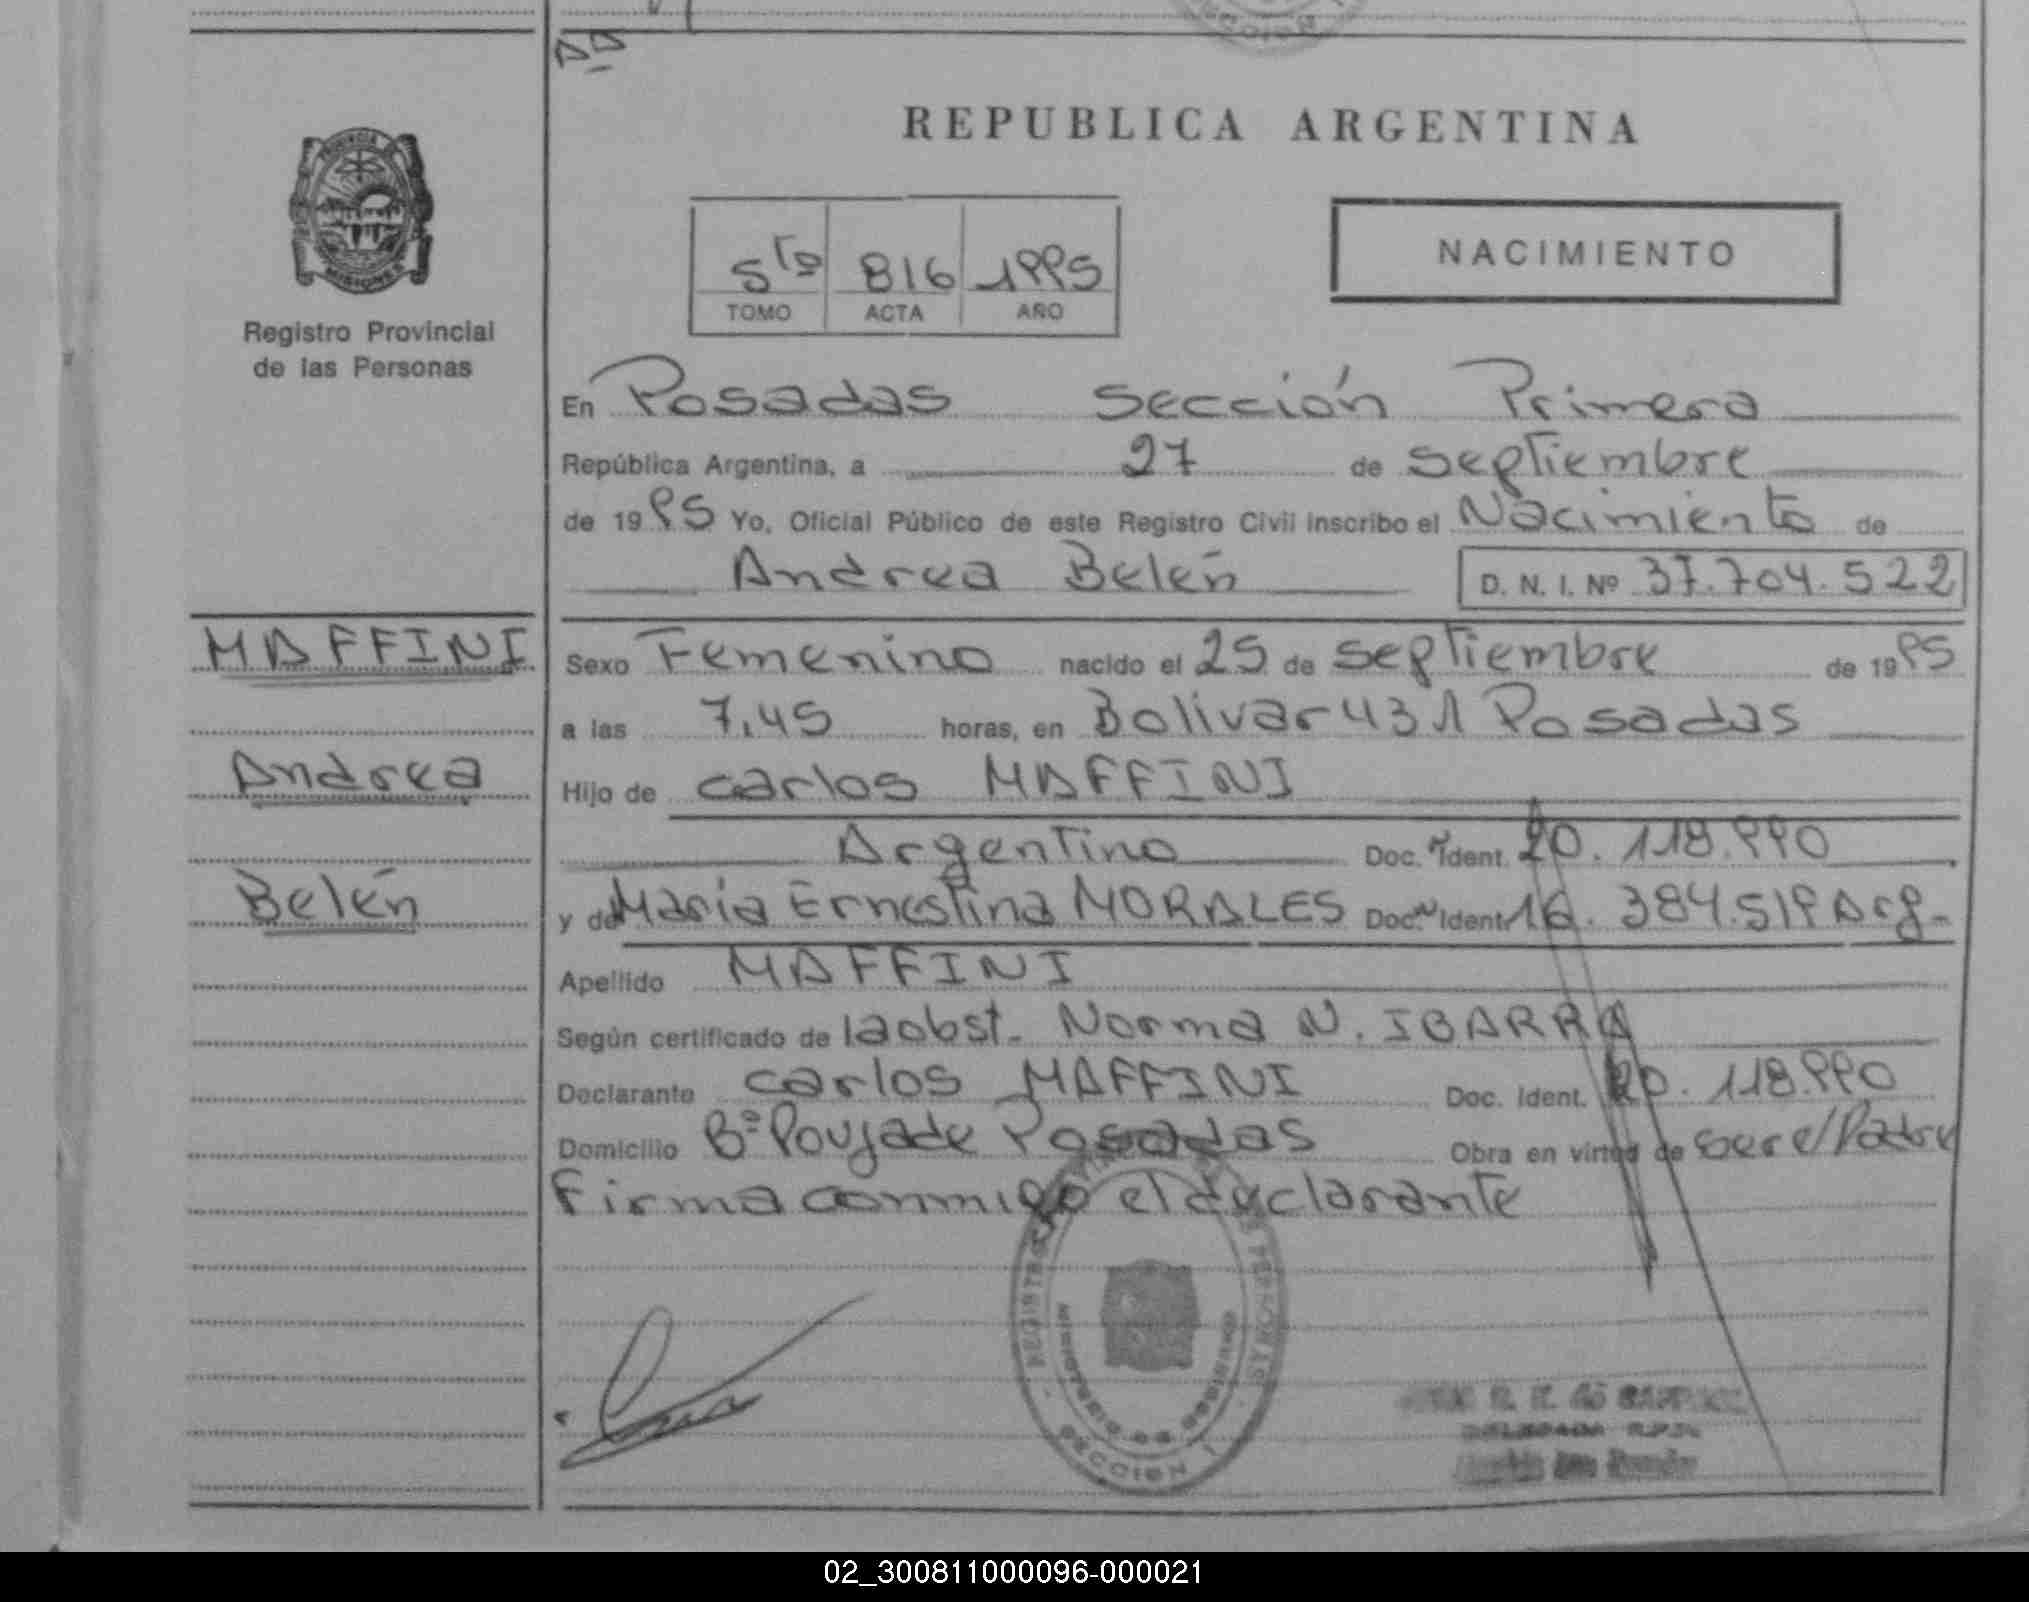 REPUBLICA ARGENTINA
NACIMIENTO
5to 816 1995
TOMO ACTA AÑO
Registro Provincial
de las Personas
En Posadas Sección Primera
República Argentina, a 27 de septiembre
de 1995 Yo, Oficial Público de este Registro Civil inscribo el Nacimiento de
Andrea Belén D. N. I. Nº 37.704.522
MAFFINI
Andrea
Belén
Sexo Femenino nacido el 25 de septiembre de 1995
a las 7,45 horas, en Bolivar 431 Posadas
Hijo de Carlos MAFFINI
Argentino Doc. Ident. 20.118.990
y de Maria Ernestina MORALES Doc. Ident. 16.384.519 Arg.
Apellido MAFFINI
Según certificado de la obst. Norma N. IBARRA
Declarante Carlos MAFFINI Doc. Ident. 20.118.990
Domicilio Bº Poujade Posadas Obra en virtud de ser el Padre
Firma conmigo el declarante
SECCION I
02_300811000096-000021